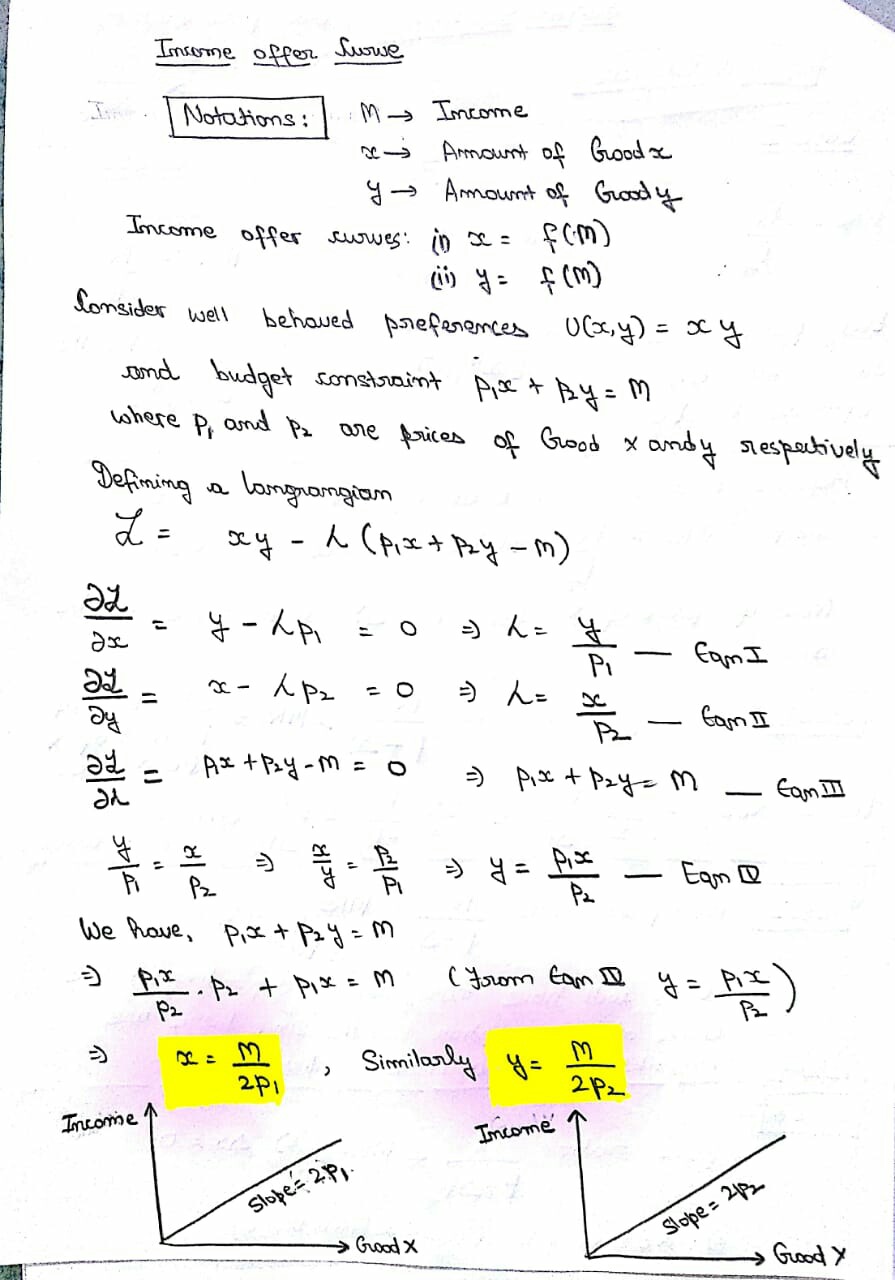 Income offer Curve
Notations: M → Income
x → Amount of Good x
y → Amount of Good y
Income offer curves: (i) x = f(M)
(ii) y = f(M)
Consider well behaved preferences U(x,y) = xy
and budget constraint P₁x + P₂y = M
where P₁ and P₂ are prices of Good x and y respectively
Defining a langrangian
ℒ = xy - λ (P₁x + P₂y - M)
∂ℒ/∂x = y - λP₁ = 0 ⇒ λ = y/P₁ — Eqn I
∂ℒ/∂y = x - λP₂ = 0 ⇒ λ = x/P₂ — Eqn II
∂ℒ/∂λ = P₁x + P₂y - M = 0 ⇒ P₁x + P₂y = M — Eqn III
y/P₁ = x/P₂ ⇒ x/y = P₂/P₁ ⇒ y = P₁x/P₂ — Eqn IV
We have, P₁x + P₂y = M
⇒ P₁x/P₂ . P₂ + P₁x = M (From Eqn IV y = P₁x/P₂)
⇒ x = M/2P₁ , Similarly y = M/2P₂
Income
Slope = 2P₁.
Good X
Income
Slope = 2P₂
Good Y